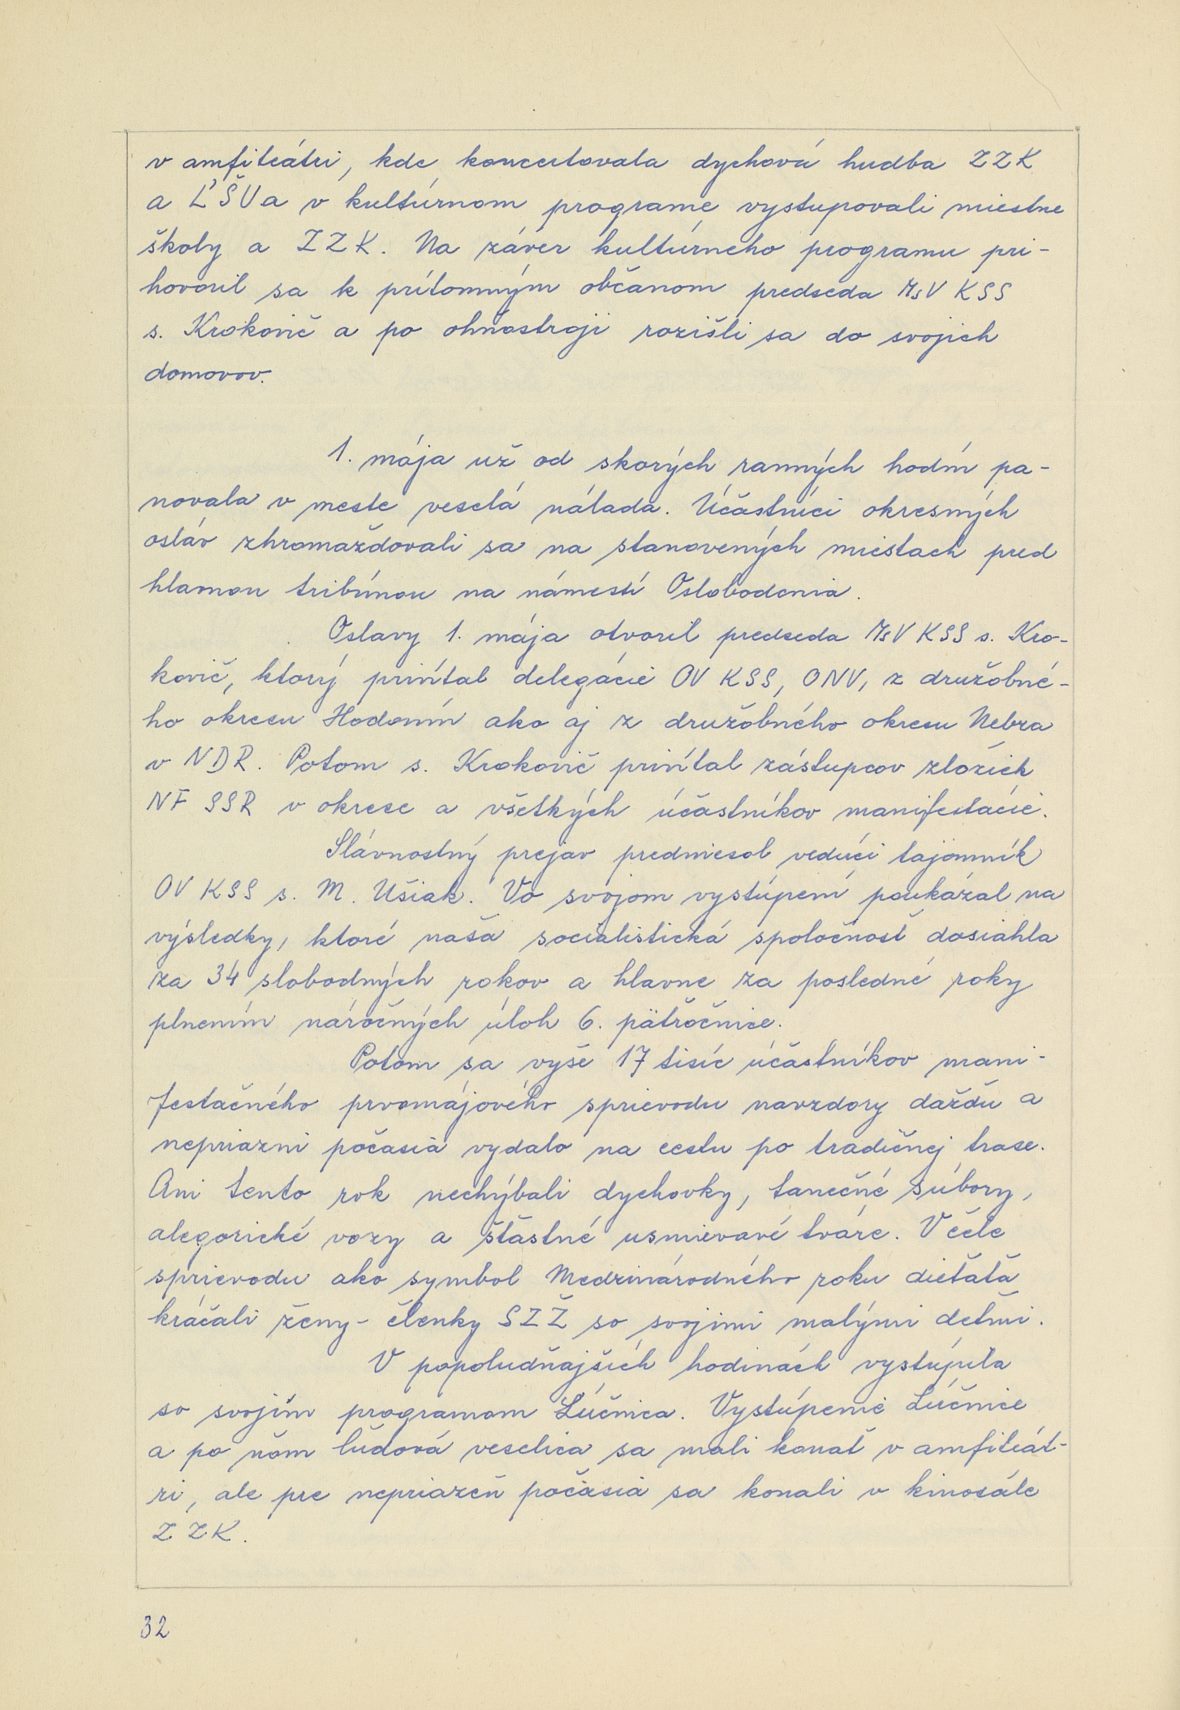 v amfiteátri, kde koncertovala dychová hudba ZZK
a ĽŠU a v kultúrnom programe vystupovali miestne
školy a ZZK. Na záver kultúrneho programu pri-
hovoril sa k prítomným občanom predseda MsV KSS
s. Krokovič a po ohňostroji rozišli sa do svojich
domovov.
1. mája už od skorých ranných hodín pa-
novala v meste veselá nálada. Účastníci okresných
osláv zhromažďovali sa na stanovených miestach pred
hlavnou tribúnou na námestí Oslobodenia.
Oslavy 1. mája otvoril predseda MsV KSS s. Kro-
kovič, ktorý privítal delegácie OV KSS, ONV, z družobné-
ho okresu Hodonín ako aj z družobného okresu Nebra
v NDR. Potom s. Krokovič privítal zástupcov zložiek
NF SSR v okrese a všetkých účastníkov manifestácie.
Slávnostný prejav predniesol vedúci tajomník
OV KSS s. M. Ušiak. Vo svojom vystúpení poukázal na
výsledky, ktoré naša socialistická spoločnosť dosiahla
za 34 slobodných rokov a hlavne za posledné roky
plnením náročných úloh 6. päťročnice.
Potom sa vyše 17 tisíc účastníkov mani-
festačného prvomájového sprievodu navzdory dažďu a
nepriazni počasia vydalo na cestu po tradičnej trase.
Ani tento rok nechýbali dychovky, tanečné súbory,
alegorické vozy a šťastné usmievavé tváre. V čele
sprievodu ako symbol Medzinárodného roku dieťaťa
kráčali ženy - členky SZŽ so svojimi malými deťmi.
V popoludňajších hodinách vystúpila
so svojím programom Lúčnica. Vystúpenie Lúčnice
a po ňom ľudová veselica sa mali konať v amfiteát-
ri, ale pre nepriazeň počasia sa konali v kinosále
ZZK.
32